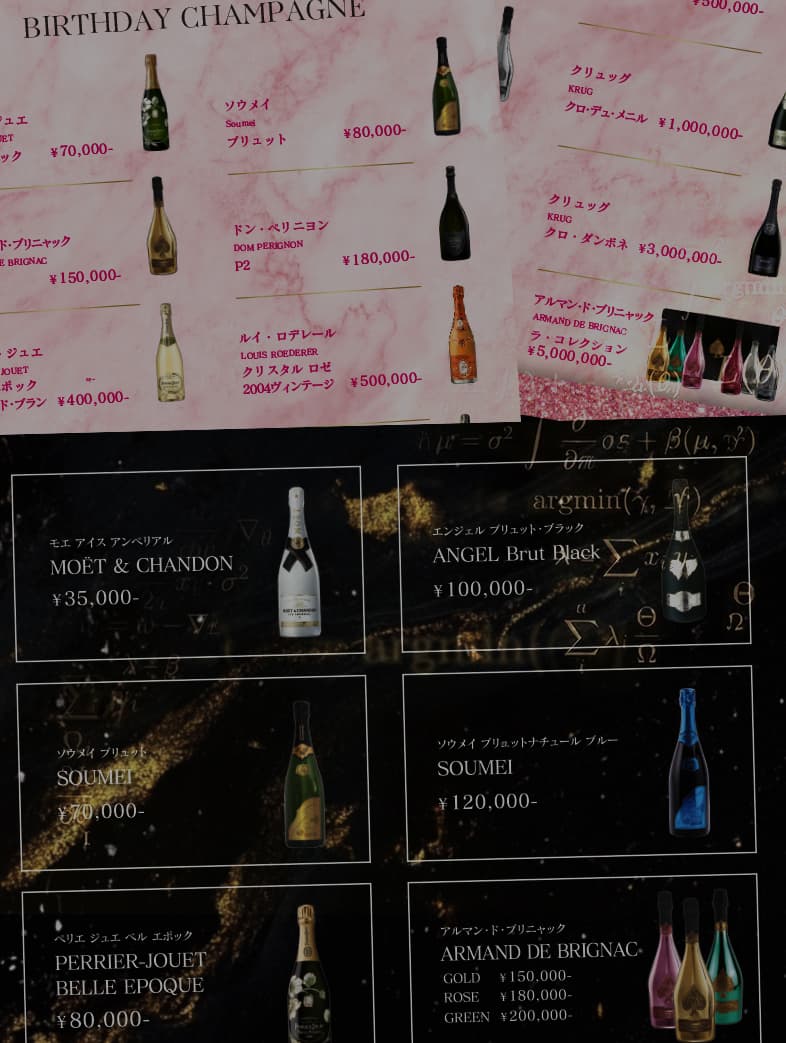 BIRTHDAY CHAMPAGNE
ジュエ
JET
ック ¥70,000-
ド・ブリニャック
E BRIGNAC
¥150,000-
・ジュエ
JOUET
ポック
ド・ブラン ¥400,000-
ソウメイ
Soumei
ブリュット ¥80,000-
ドン・ペリニヨン
DOM PERIGNON
P2 ¥180,000-
ルイ・ロデレール
LOUIS ROEDERER
クリスタル ロゼ
2004ヴィンテージ ¥500,000-
¥500,000-
クリュッグ
KRUG
クロ・デュ・メニル ¥1,000,000-
クリュッグ
KRUG
クロ・ダンボネ ¥3,000,000-
アルマン・ド・ブリニャック
ARMAND DE BRIGNAC
ラ・コレクション
¥5,000,000-
モエ アイス アンペリアル
MOËT & CHANDON
¥35,000-
エンジェル ブリュット・ブラック
ANGEL Brut Black
¥100,000-
argmin(
ソウメイ ブリュット
SOUMEI
¥70,000-
ソウメイ ブリュットナチュール ブルー
SOUMEI
¥120,000-
ペリエ ジュエ ベル エポック
PERRIER-JOUET
BELLE EPOQUE
¥80,000-
アルマン・ド・ブリニャック
ARMAND DE BRIGNAC
GOLD ¥150,000-
ROSE ¥180,000-
GREEN ¥200,000-